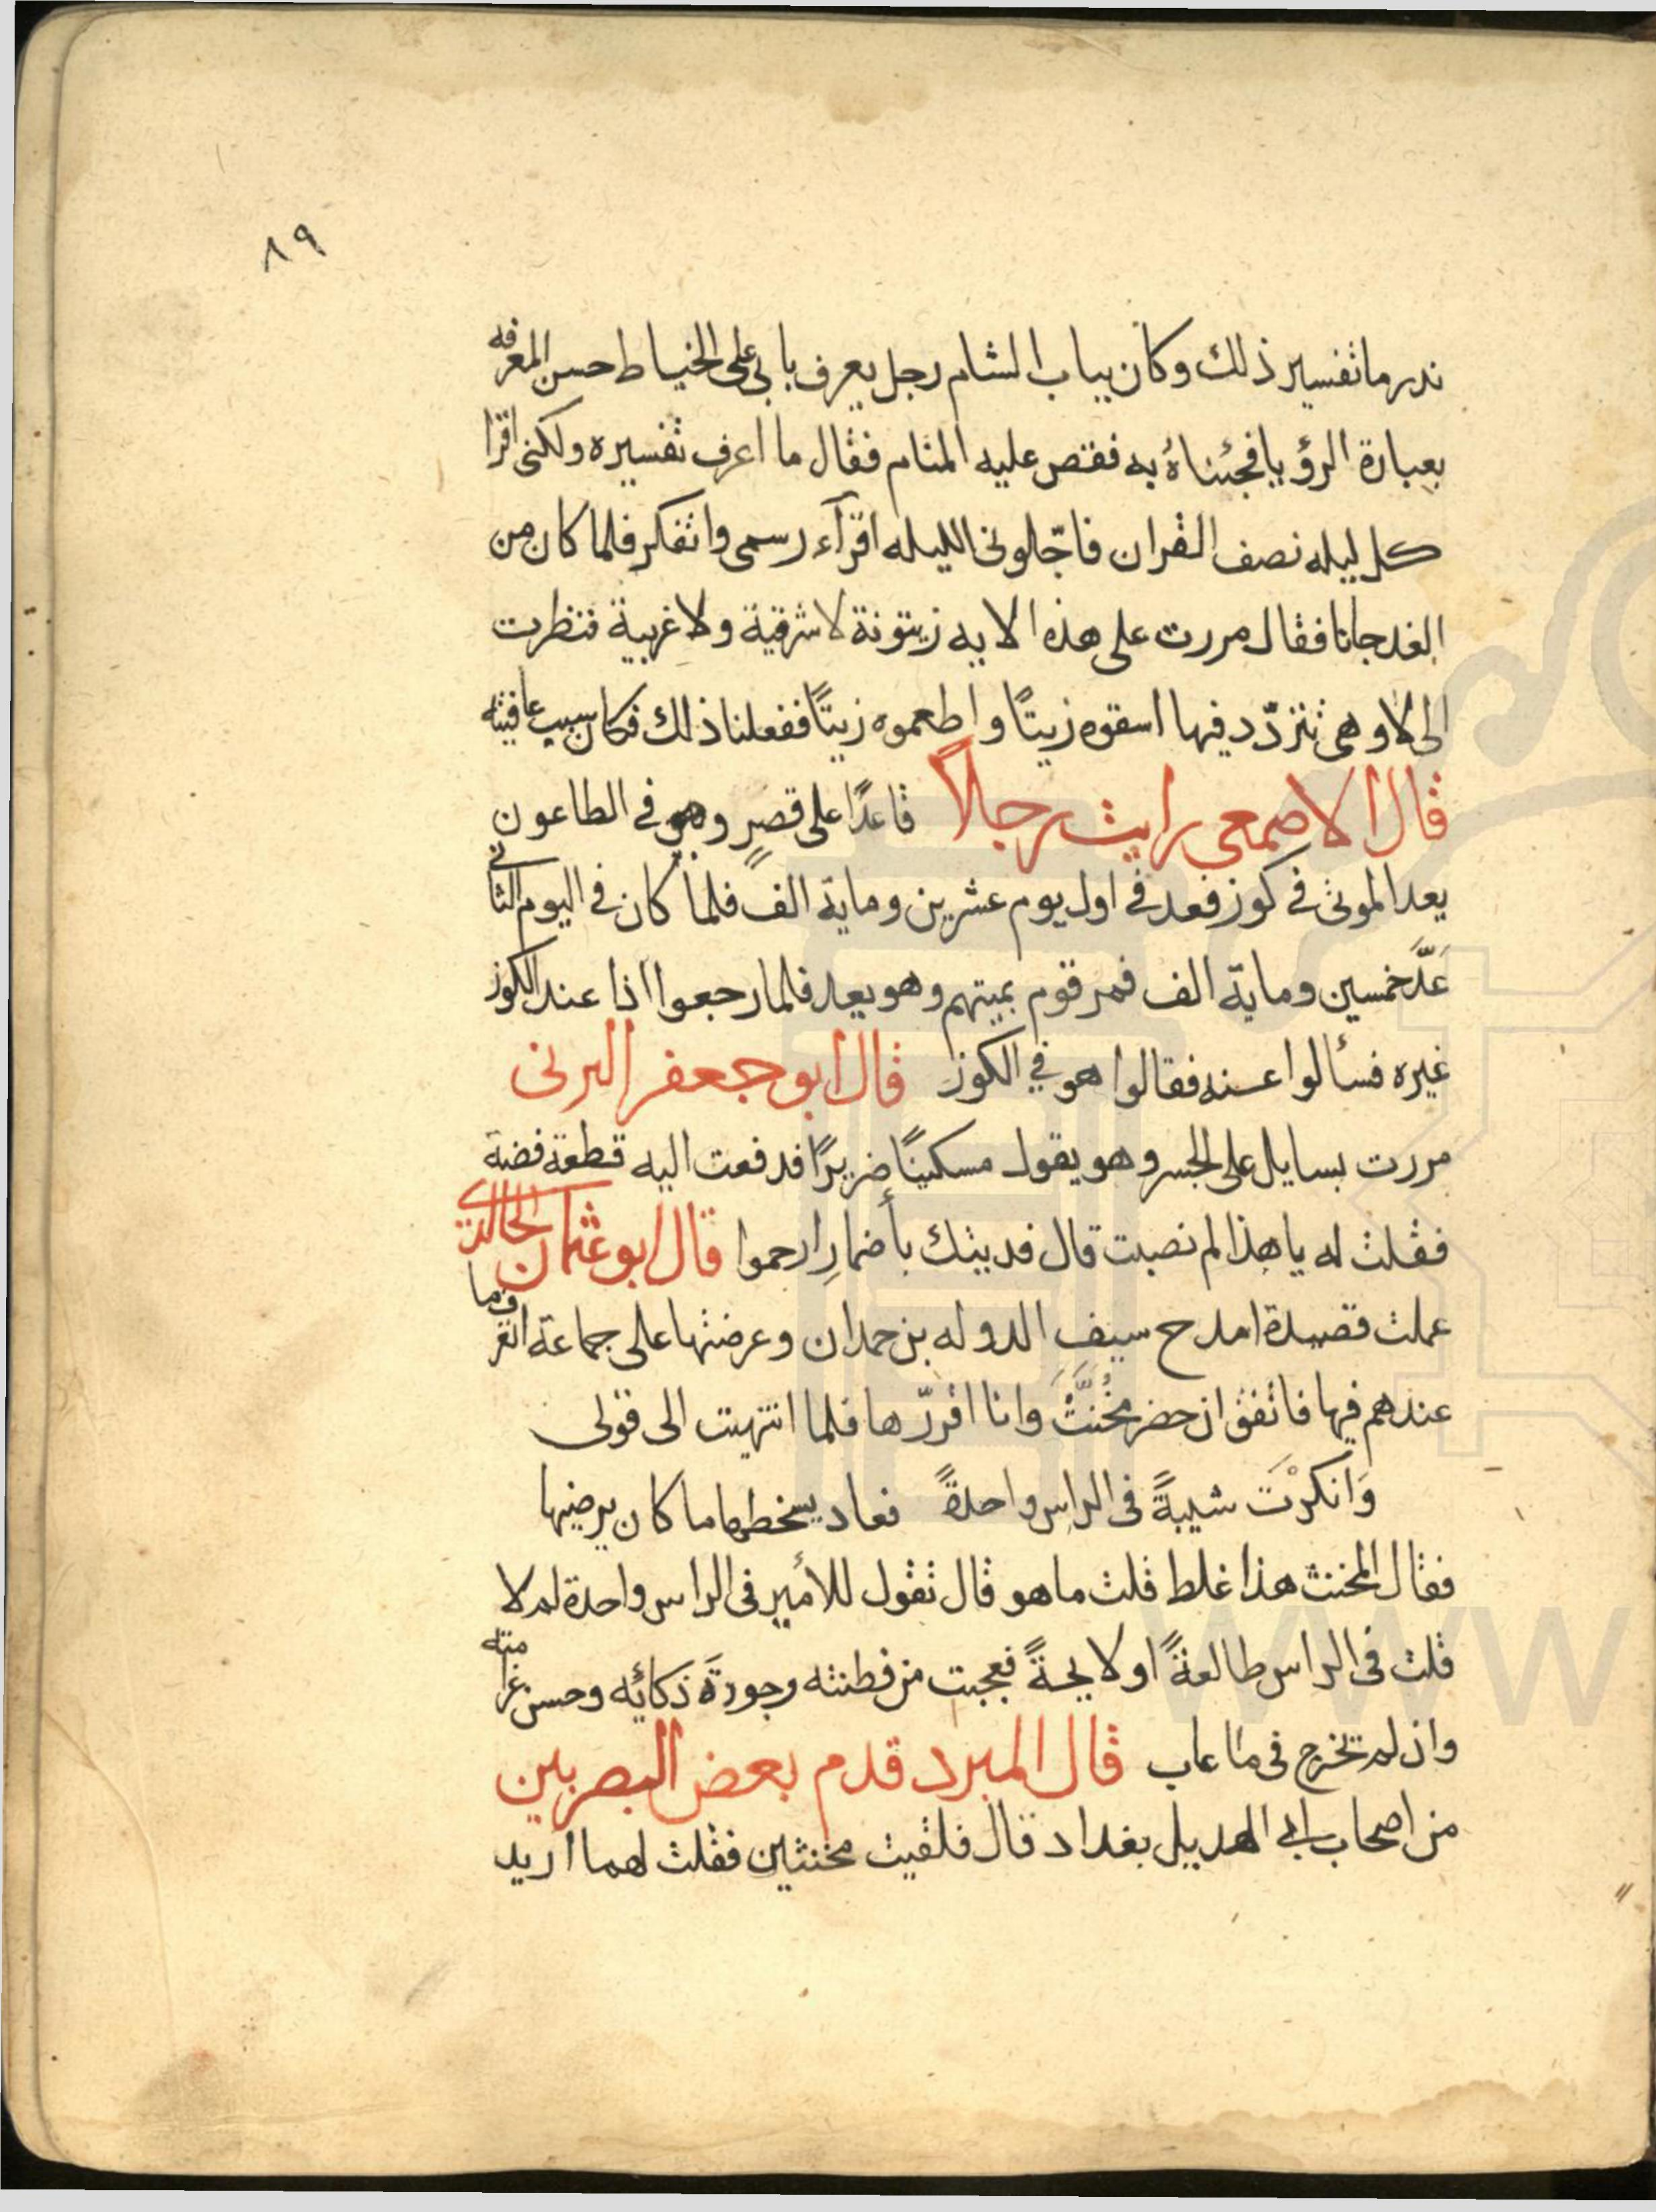 ٨٩
ندر ما تفسير ذلك وكان بباب الشام رجل يعرف بابى على الخياط حسن المعرفه
بعبارة الرؤيا فجئناهُ به فقص عليه المنام فقال ما اعرف تفسيره ولكنى اقرا
كل ليله نصف القران فاجّلونى الليله اقرآء رسمى واتفكر فلما كان من
الغد جانا فقال مررت على هذه الايه زيتونة لا شرقية ولا غربية فنظرت
الى لا وهى تتردّد فيها اسقوه زيتًا واطعموه زيتًا ففعلنا ذلك فكان سبب عافيته
قال الاصمعى رايت رجلاً قاعدًا على قصرٍ وهو فى الطاعون
يعد الموتى فى كوز فعد فى اول يوم عشرين وماية الف فلما كان فى اليوم الثانى
عَدَّ خمسين وماية الف فمر قوم بميتهم وهو يعد فلما رجعوا اذا عند الكوز
غيره فسألوا عنه فقالوا هو فى الكوز قال ابو جعفر البرنى
مررت بسايل على الجسر وهو يقول مسكينًا ضريرًا فدفعت اليه قطعة فضة
فقلت له يا هذا لم نصبت قال فديتك بأضمارِ ارحموا قال ابو عثمان الخالدى
عملت قصيدة امدح سيف الدوله بن حمدان وعرضتها على جماعة اتعرف ما
عندهم فيها فاتفق ان حضر مُخَنَّثٌ وانا اقررّها فلما انتهيت الى قولى
وَانكرْتَ شيبةً فى الراس واحدةً فعاد يسخطها ما كان يرضيها
فقال المخنث هذا غلط قلت ما هو قال تقول للأمير فى الراس واحدة لم لا
قلت فى الراس طالعةً او لايحةً فعجبت من فطنته وجودَة ذكائه وحسن غرامته
وان لم تخرج فى ما عاب قال المبرد قدم بعض البصريين
من اصحاب ابى الهديل بغداد قال فلقيت مخنثين فقلت لهما اريد